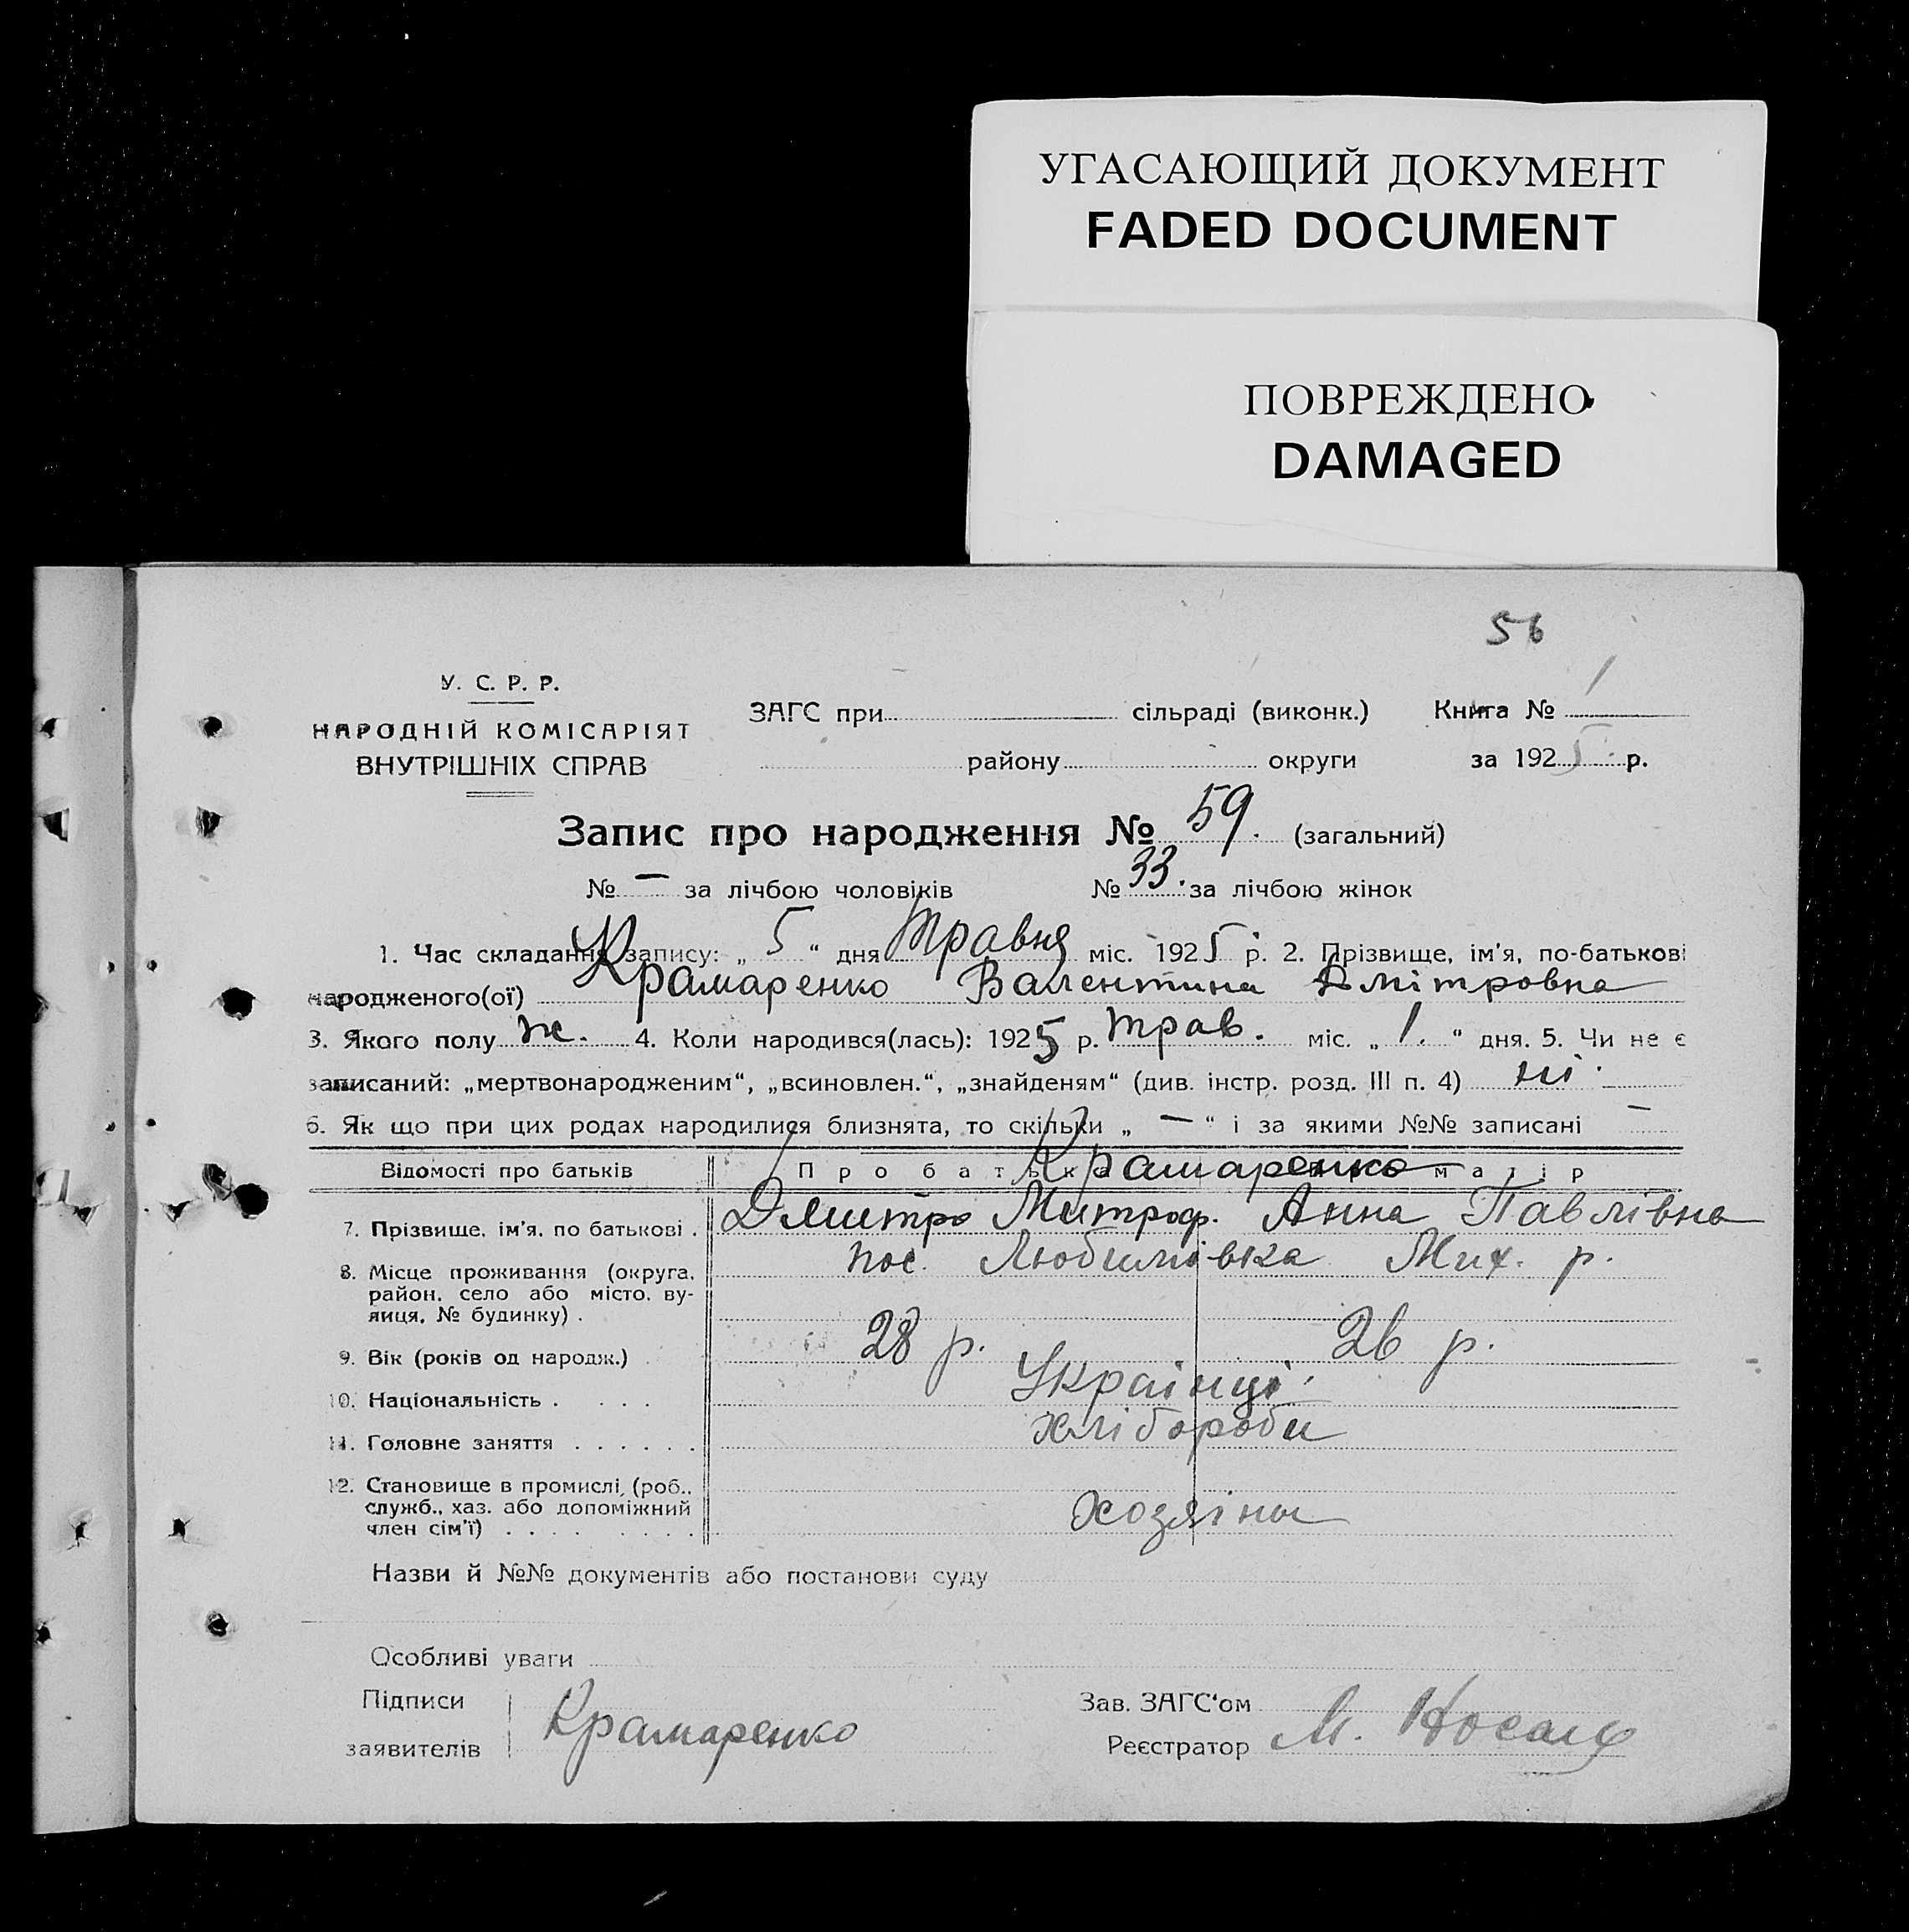 УГАСАЮЩИЙ ДОКУМЕНТ
FADED DOCUMENT
ПОВРЕЖДЕНО
DAMAGED
56
У. С. Р. Р.
НАРОДНІЙ КОМІСАРІЯТ
ВНУТРІШНІХ СПРАВ
ЗАГС при сільраді (виконк.) Книга № 1
району округи за 1925 р.
Запис про народження № 59. (загальний)
№ — за лічбою чоловіків № 33. за лічбою жінок
1. Час складання запису: „ 5 “ дня Травня міс. 1925 р. 2. Прізвище, ім'я, по-батькові
народженого(ої) Крамаренко Валентина Дмітровна
3. Якого полу ж. 4. Коли народився(лась): 1925 р. трав. міс. „ 1. “ дня. 5. Чи не є
записаний: „мертвонародженим“, „всиновлен.“, „знайденям“ (див. інстр. розд. III п. 4) ні.
6. Як що при цих родах народилися близнята, то скільки „ — “ і за якими №№ записані —
Відомості про батьків Про батька Крамаренко матір
7. Прізвище, ім'я, по батькові . Дмитро Митроф. Анна Павлівна
8. Місце проживання (округа, пос. Любимівка Мих. р.
район, село або місто, ву-
лиця, № будинку) .
9. Вік (років од народж.) 28 р. 26 р.
10. Національність . . . . Українці.
11. Головне заняття . . . . . . хлібороби
12. Становище в промислі, (роб.,
служб., хаз. або допоміжний хозяїни
член сім'ї) . . . . . . . .
Назви й №№ документів або постанови суду
Особливі уваги
Підписи Зав. ЗАГС'ом
заявителів Крамаренко Реєстратор М.